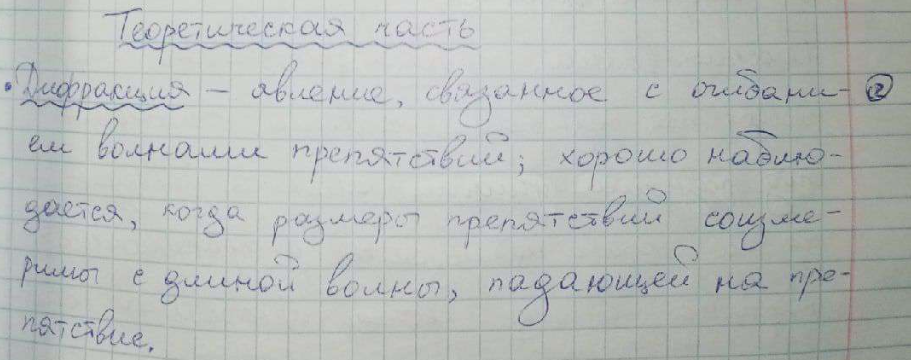 Теоретическая часть
• Дифракция – явление, связанное с огибани-
ем волнами препятствий; хорошо наблю-
дается, когда размеры препятствий соизме-
римы с длиной волны, падающей на пре-
пятствие.